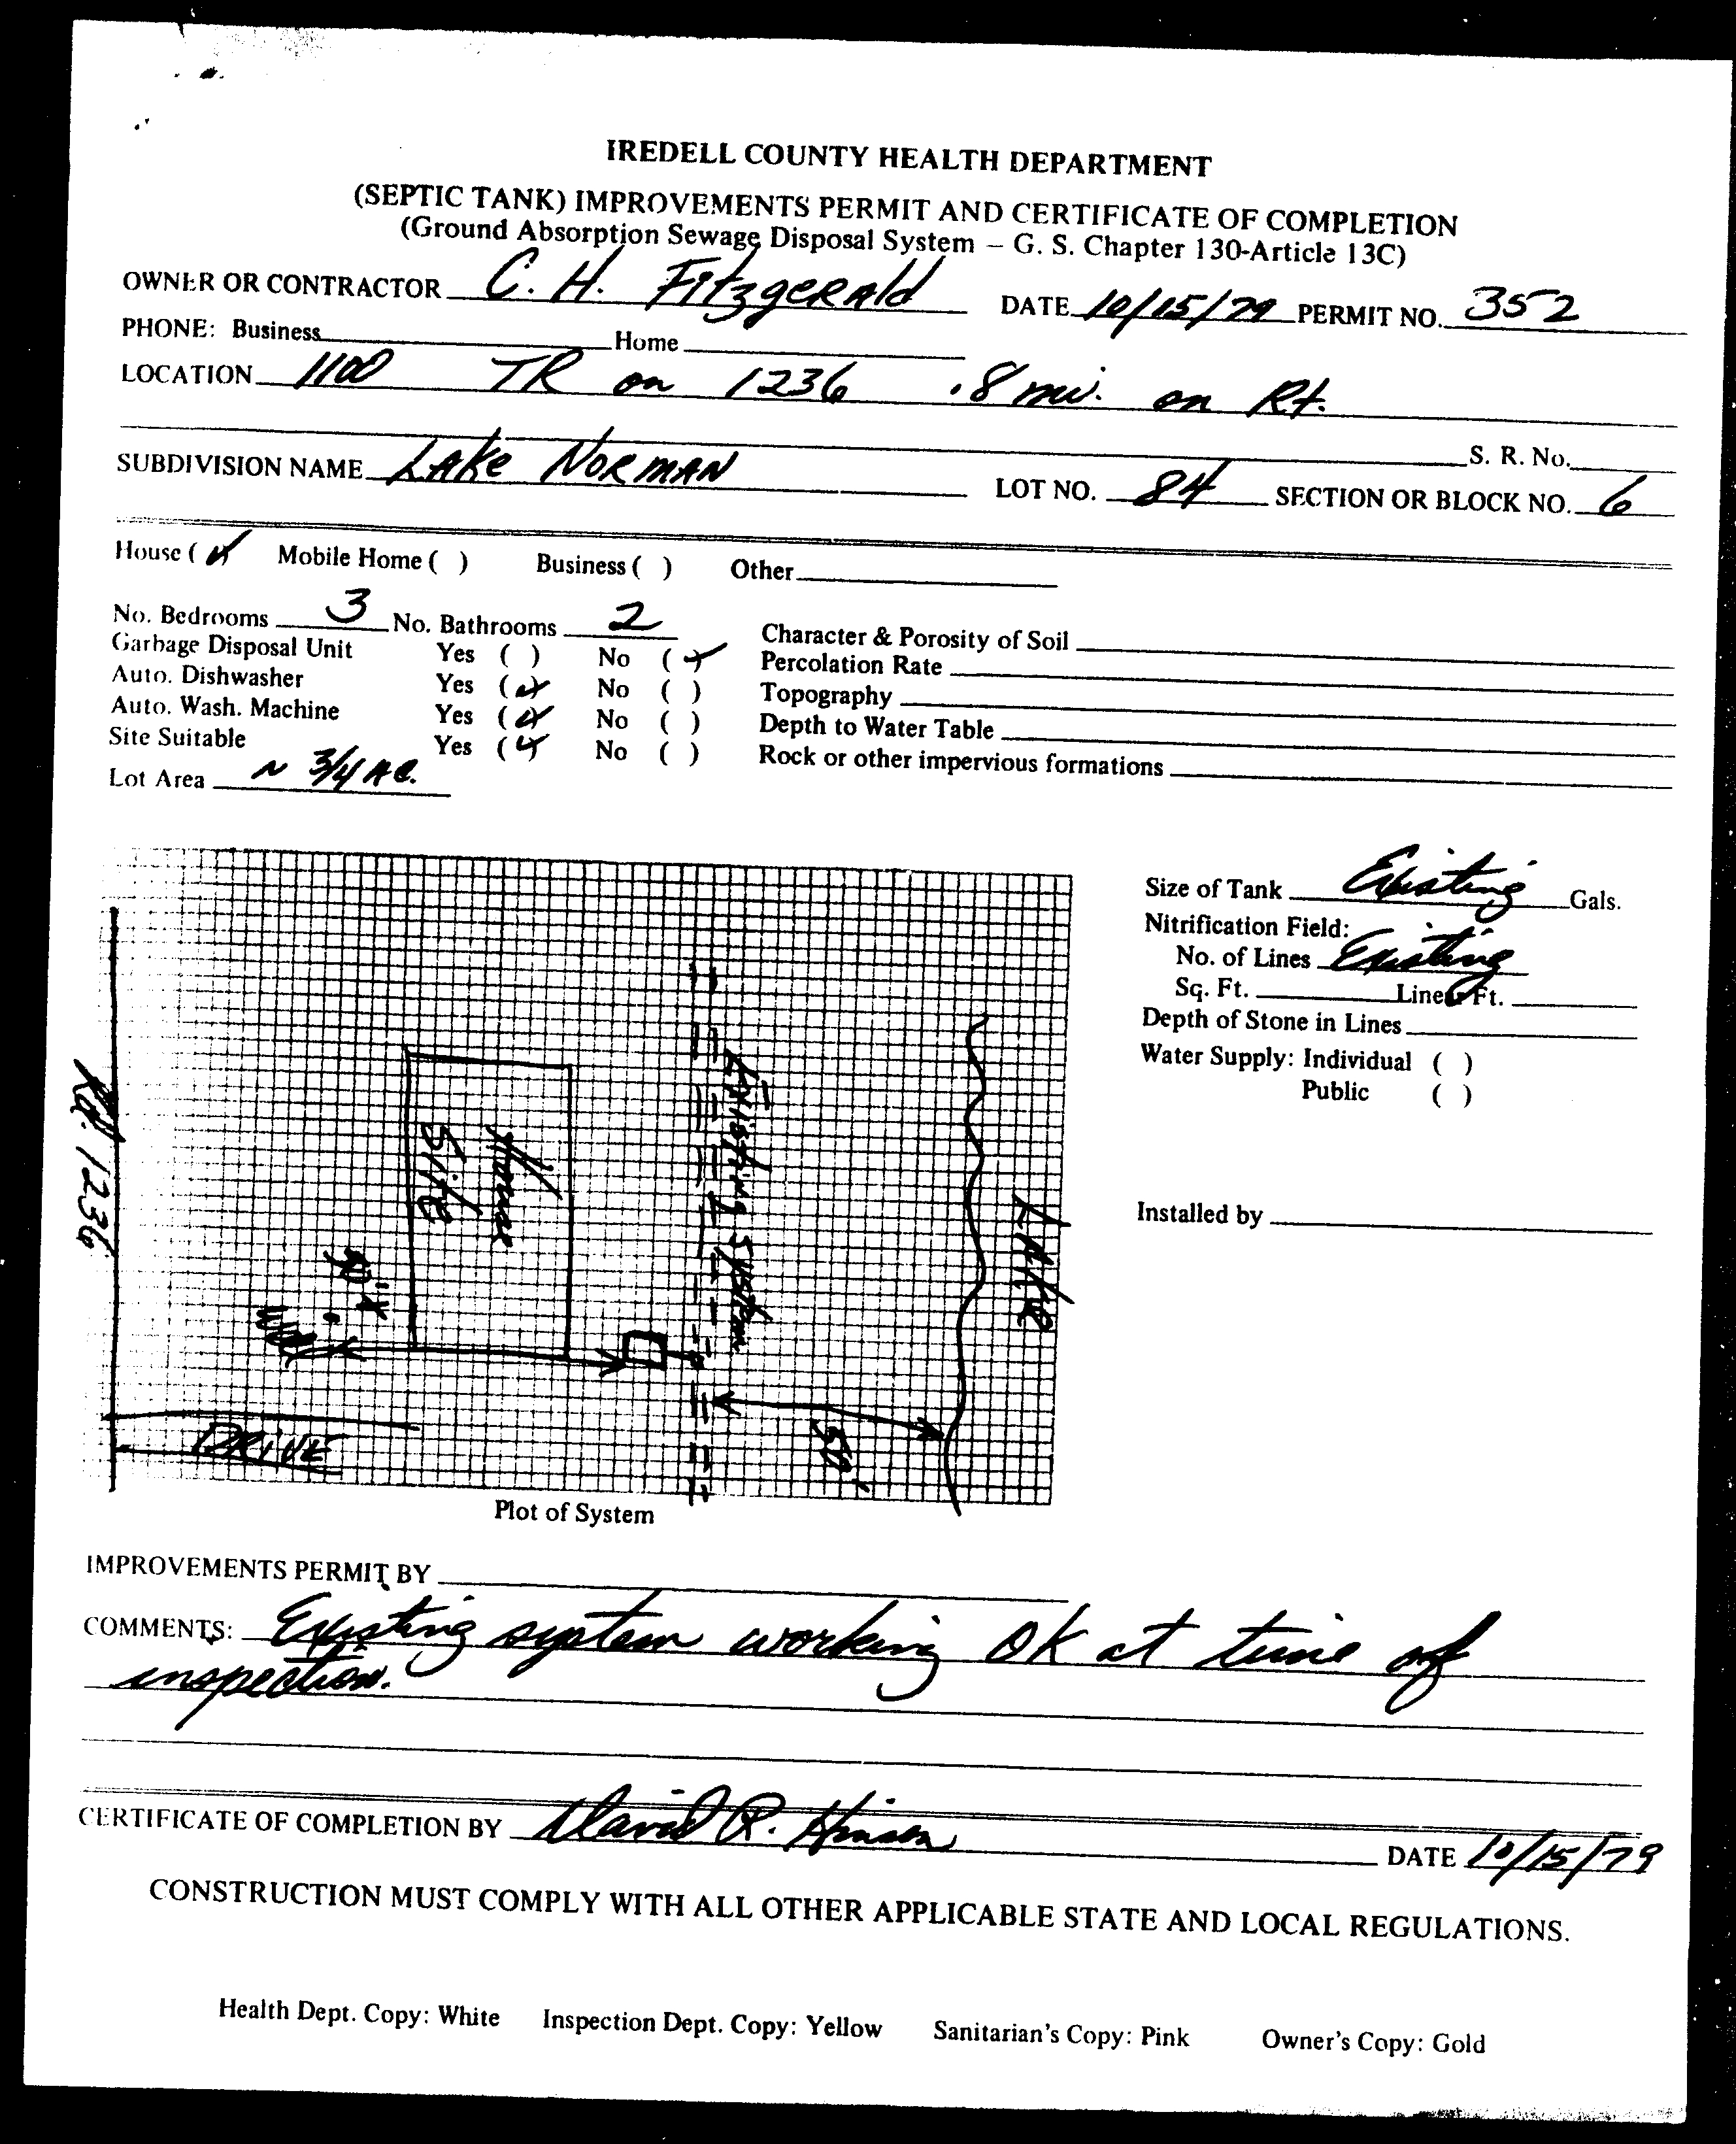 IREDELL COUNTY HEALTH DEPARTMENT
(SEPTIC TANK) IMPROVEMENTS PERMIT AND CERTIFICATE OF COMPLETION
(Ground Absorption Sewage Disposal System – G. S. Chapter 130-Article 13C)
OWNER OR CONTRACTOR C. H. Fitzgerald DATE 10/15/79 PERMIT NO. 352
PHONE: Business Home
LOCATION 1100 TR on 1236 .8 mi. on Rt.
S. R. No.
SUBDIVISION NAME LAKE NORMAN LOT NO. 84 SECTION OR BLOCK NO. 6
House (✓) Mobile Home ( ) Business ( ) Other
No. Bedrooms 3 No. Bathrooms 2 Character & Porosity of Soil
Garbage Disposal Unit Yes ( ) No (✓) Percolation Rate
Auto. Dishwasher Yes (✓) No ( ) Topography
Auto. Wash. Machine Yes (✓) No ( ) Depth to Water Table
Site Suitable Yes (✓) No ( ) Rock or other impervious formations
Lot Area ~ 3/4 AC.
Size of Tank Existing Gals.
Nitrification Field:
No. of Lines Existing
Sq. Ft. Linear Ft.
Depth of Stone in Lines
Water Supply: Individual ( )
Public ( )
Installed by
Rd. 1236
Home
Site
Existing System
Lake
Well
50'
DRIVE
Plot of System
IMPROVEMENTS PERMIT BY
COMMENTS: Existing system working OK at time of
inspection.
CERTIFICATE OF COMPLETION BY David R. Hinson DATE 10/15/79
CONSTRUCTION MUST COMPLY WITH ALL OTHER APPLICABLE STATE AND LOCAL REGULATIONS.
Health Dept. Copy: White Inspection Dept. Copy: Yellow Sanitarian's Copy: Pink Owner's Copy: Gold